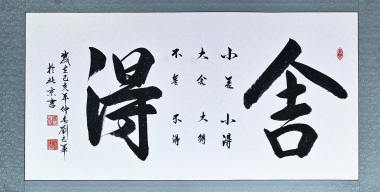 舍
小舍小得
大舍大得
不舍不得
得
岁在己亥年仲春刘志军
於北京书